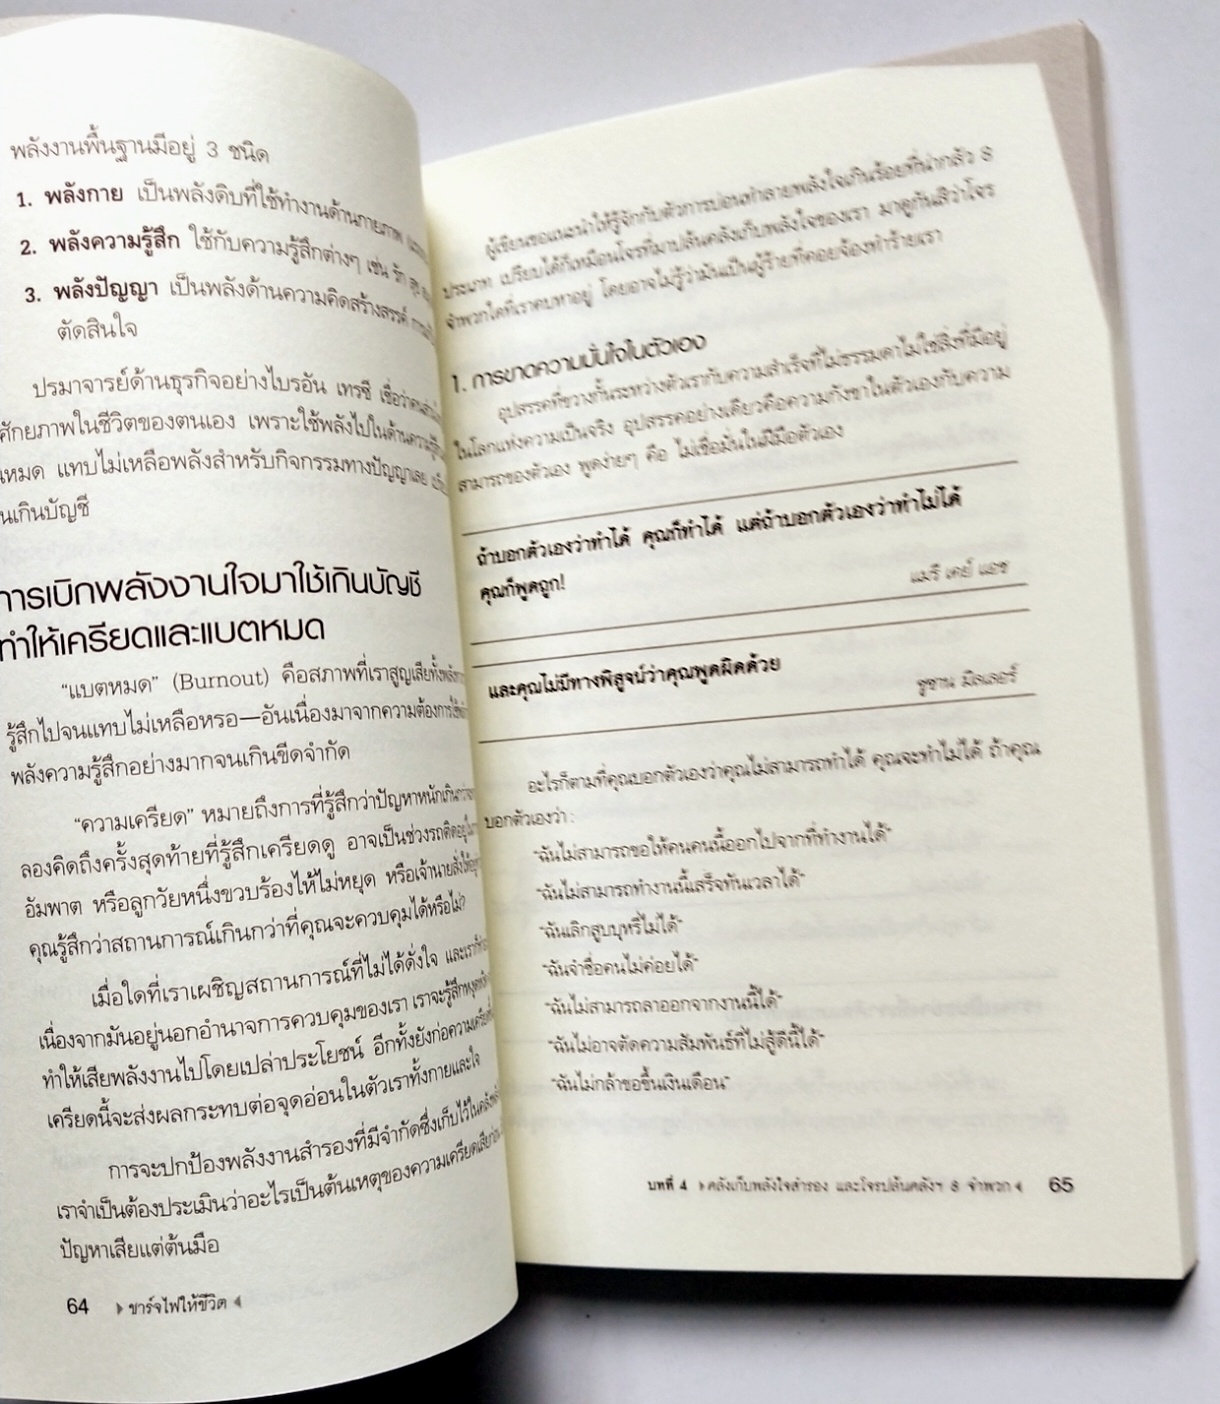 พลังงานพื้นฐานมีอยู่ 3 ชนิด
1. พลังกาย เป็นพลังดิบที่ใช้ทำงานด้านกายภาพ
2. พลังความรู้สึก ใช้กับความรู้สึกต่างๆ เช่น รัก สุข
3. พลังปัญญา เป็นพลังด้านความคิดสร้างสรรค์
ตัดสินใจ
ปรมาจารย์ด้านธุรกิจอย่างไบรอัน เทรซี เชื่อว่าคน
ศักยภาพในชีวิตของตนเอง เพราะใช้พลังไปในด้านความรู้สึก
หมด แทบไม่เหลือพลังสำหรับกิจกรรมทางปัญญาเลย
นเกินบัญชี
การเบิกพลังงานใจมาใช้เกินบัญชี
ทำให้เครียดและแบตหมด
“แบตหมด” (Burnout) คือสภาพที่เราสูญเสียทั้งพลัง
รู้สึกไปจนแทบไม่เหลือหรอ—อันเนื่องมาจากความต้องการใช้
พลังความรู้สึกอย่างมากจนเกินขีดจำกัด
“ความเครียด” หมายถึงการที่รู้สึกว่าปัญหาหนักเกินกว่า
ลองคิดถึงครั้งสุดท้ายที่รู้สึกเครียดดู อาจเป็นช่วงรถติดอยู่
อัมพาต หรือลูกวัยหนึ่งขวบร้องไห้ไม่หยุด หรือเจ้านายสั่งให้
คุณรู้สึกว่าสถานการณ์เกินกว่าที่คุณจะควบคุมได้หรือไม่?
เมื่อใดที่เราเผชิญสถานการณ์ที่ไม่ได้ดั่งใจ และเรา
เนื่องจากมันอยู่นอกอำนาจการควบคุมของเรา เราจะรู้สึกหงุดหงิด
ทำให้เสียพลังงานไปโดยเปล่าประโยชน์ อีกทั้งยังก่อความเครียดซึ่ง
เครียดนี้จะส่งผลกระทบต่อจุดอ่อนในตัวเราทั้งกายและใจ
การจะปกป้องพลังงานสำรองที่มีจำกัดซึ่งเก็บไว้ในคลัง
เราจำเป็นต้องประเมินว่าอะไรเป็นต้นเหตุของความเครียดเสียก่อน
ปัญหาเสียแต่ต้นมือ
64 ชาร์จไฟให้ชีวิต
ผู้เขียนขอแนะนำให้รู้จักกับตัวการบ่อนทำลายพลังใจเกินร้อยที่น่ากลัว 8
ประเภท เปรียบได้ก็เหมือนโจรที่มาปล้นคลังเก็บพลังใจของเรา มาดูกันสิว่าโจร
จำพวกใดที่เราคบหาอยู่ โดยอาจไม่รู้ว่ามันเป็นผู้ร้ายที่คอยจ้องทำร้ายเรา
1. การขาดความมั่นใจในตัวเอง
อุปสรรคที่ขวางกั้นระหว่างตัวเรากับความสำเร็จที่ไม่ธรรมดาไม่ใช่สิ่งที่มีอยู่
ในโลกแห่งความเป็นจริง อุปสรรคอย่างเดียวคือความกังขาในตัวเองกับความ
สามารถของตัวเอง พูดง่ายๆ คือ ไม่เชื่อมั่นในฝีมือตัวเอง
ถ้าบอกตัวเองว่าทำได้ คุณก็ทำได้ แต่ถ้าบอกตัวเองว่าทำไม่ได้
คุณก็พูดถูก!
แมรี เคย์ แอช
และคุณไม่มีทางพิสูจน์ว่าคุณพูดผิดด้วย
ซูซาน มิลเลอร์
อะไรก็ตามที่คุณบอกตัวเองว่าคุณไม่สามารถทำได้ คุณจะทำไม่ได้ ถ้าคุณ
บอกตัวเองว่า :
“ฉันไม่สามารถขอให้คนคนนี้ออกไปจากที่ทำงานได้”
“ฉันไม่สามารถทำงานนี้เสร็จทันเวลาได้”
“ฉันเลิกสูบบุหรี่ไม่ได้”
“ฉันจำชื่อคนไม่ค่อยได้”
“ฉันไม่สามารถลาออกจากงานนี้ได้”
“ฉันไม่อาจตัดความสัมพันธ์ที่ไม่สู้ดีนี้ได้”
“ฉันไม่กล้าขอขึ้นเงินเดือน”
บทที่ 4 คลังเก็บพลังใจสำรอง และโจรปล้นคลังฯ 8 จำพวก 65